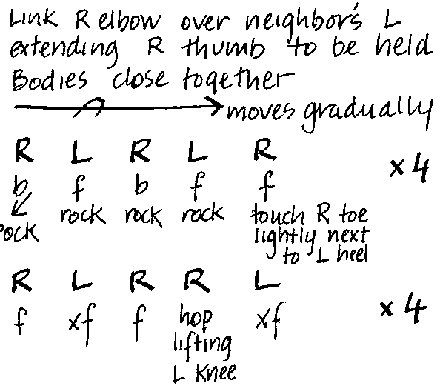 Link R elbow over neighbor's L
extending R thumb to be held
Bodies close together
moves gradually
R L R L R x4
b f b f f
rock rock rock rock touch R toe
lightly next
to L heel
R L R R L x4
f xf f hop xf
lifting
L knee